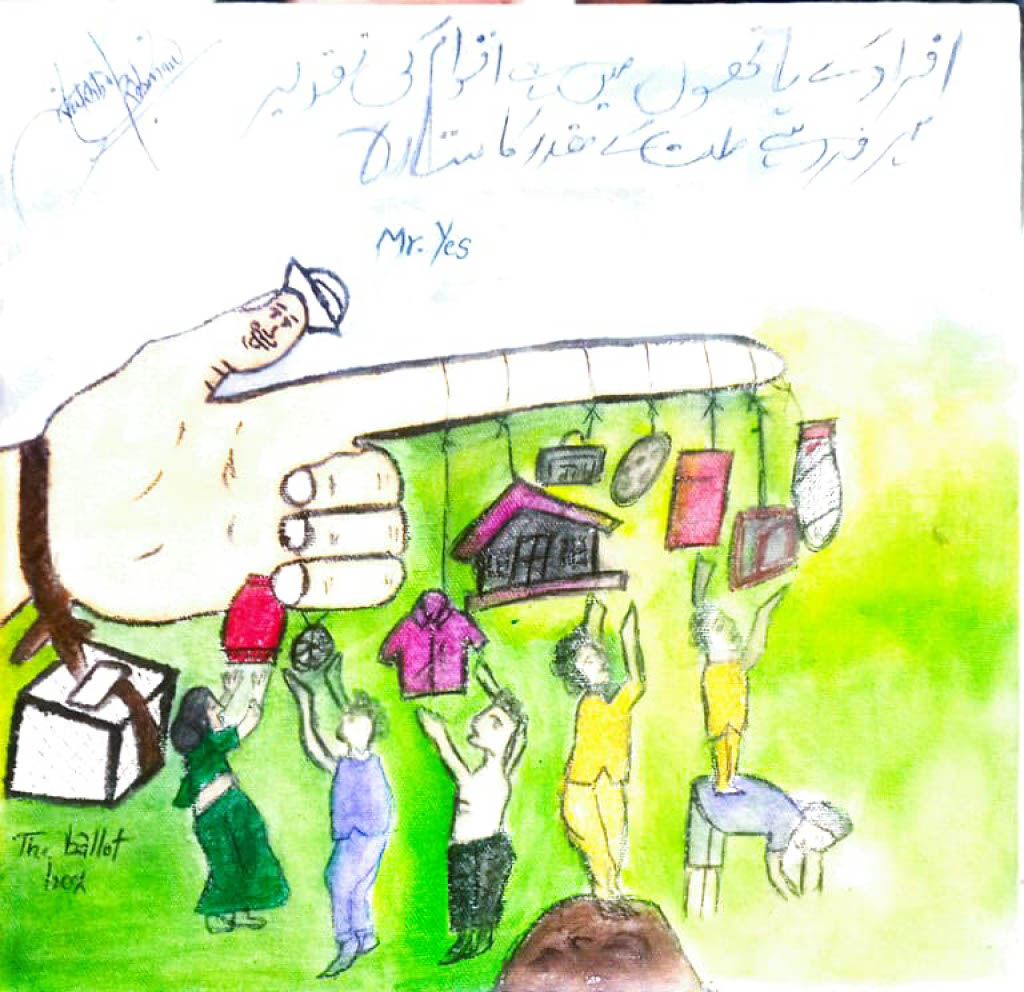 افراد کے ہاتھوں میں ہے اقوام کی تقدیر
ہر فرد ہے ملت کے مقدر کا ستارہ
Mr. Yes
The ballot
box